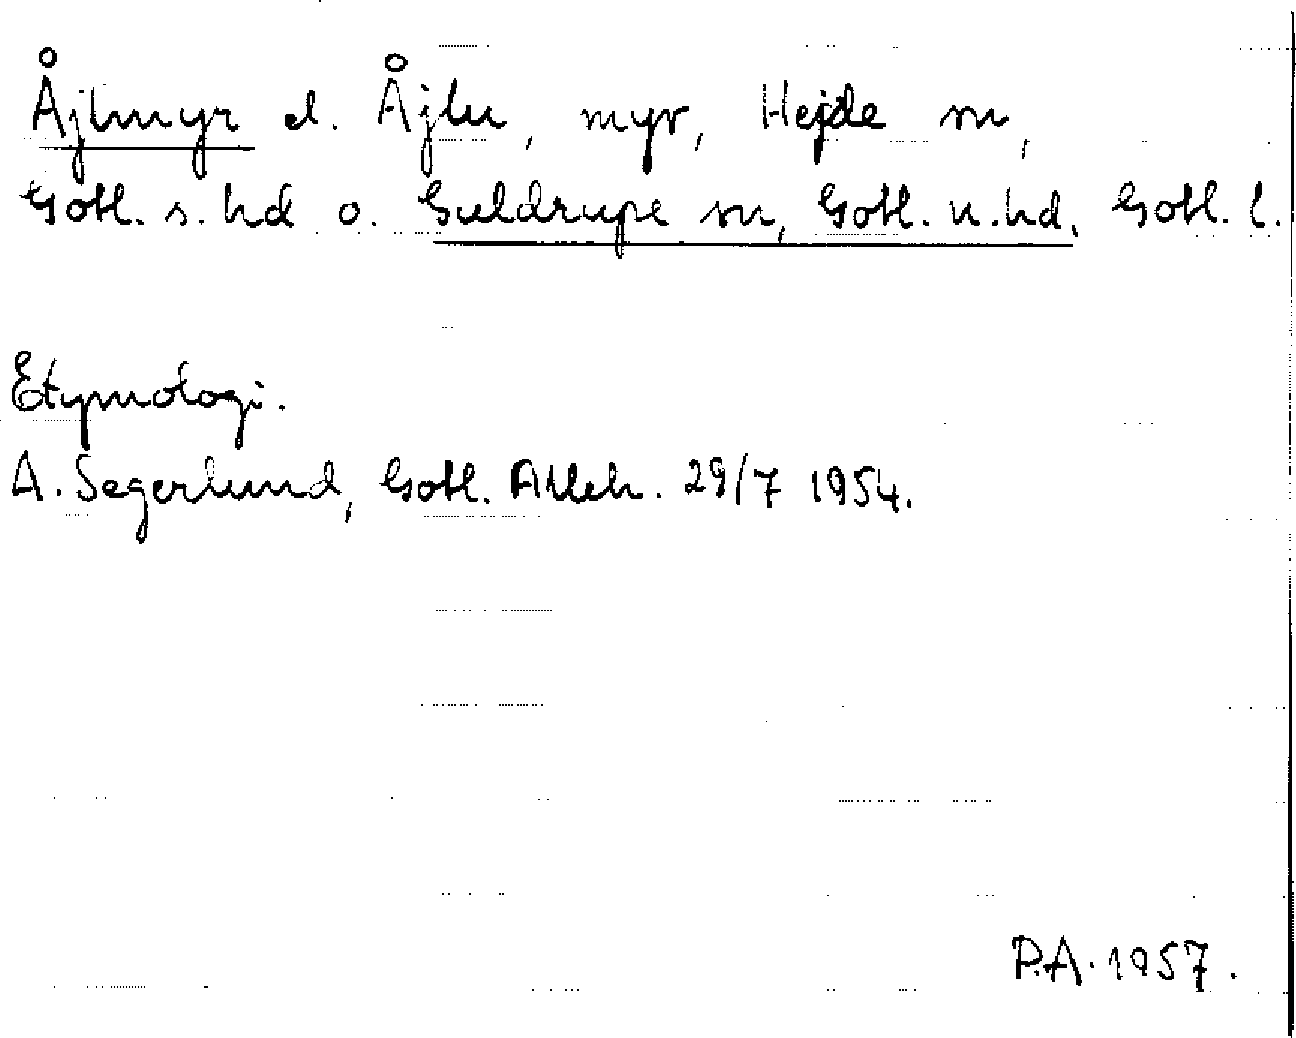 Åjlmyr el. Åjlu, myr, Hejde sn,
Gotl. s. hd o. Guldrupe sn, Gotl. n. hd. Gotl. l.
Etymologi.
A. Segerlund, Gotl. Alleh. 29/7 1954.
P.A. 1957.